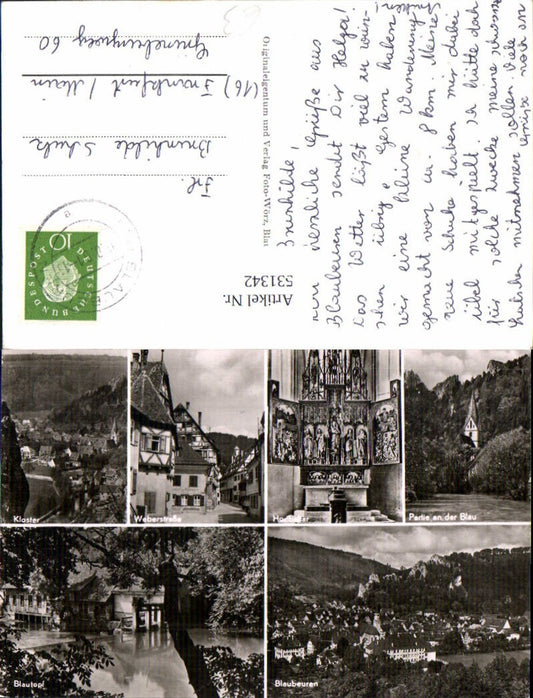 Brunhilde!
Herzliche Grüße aus
Blaubeuren sendet Dir Helga!
Das Wetter läßt viel zu wün-
schen übrig. Gestern haben
wir eine kleine Wanderung
gemacht von ca. 8 km. Meine
neue Schuhe haben mir dabei
übel mitgespielt. Ich hätte doch
für solche Zwecke meine
mitnehmen sollen. Viele
Grüße noch an
Originaleigentum und Verlag Foto-Wörz, Blau
Artikel Nr.
531342
Frl.
Brunhilde Schulz
(16) Frankfurt / Main
Grüneburgweg 60
DEUTSCHE BUNDESPOST
10
Kloster
Weberstraße
Hochaltar
Partie an der Blau
Blautopf
Blaubeuren